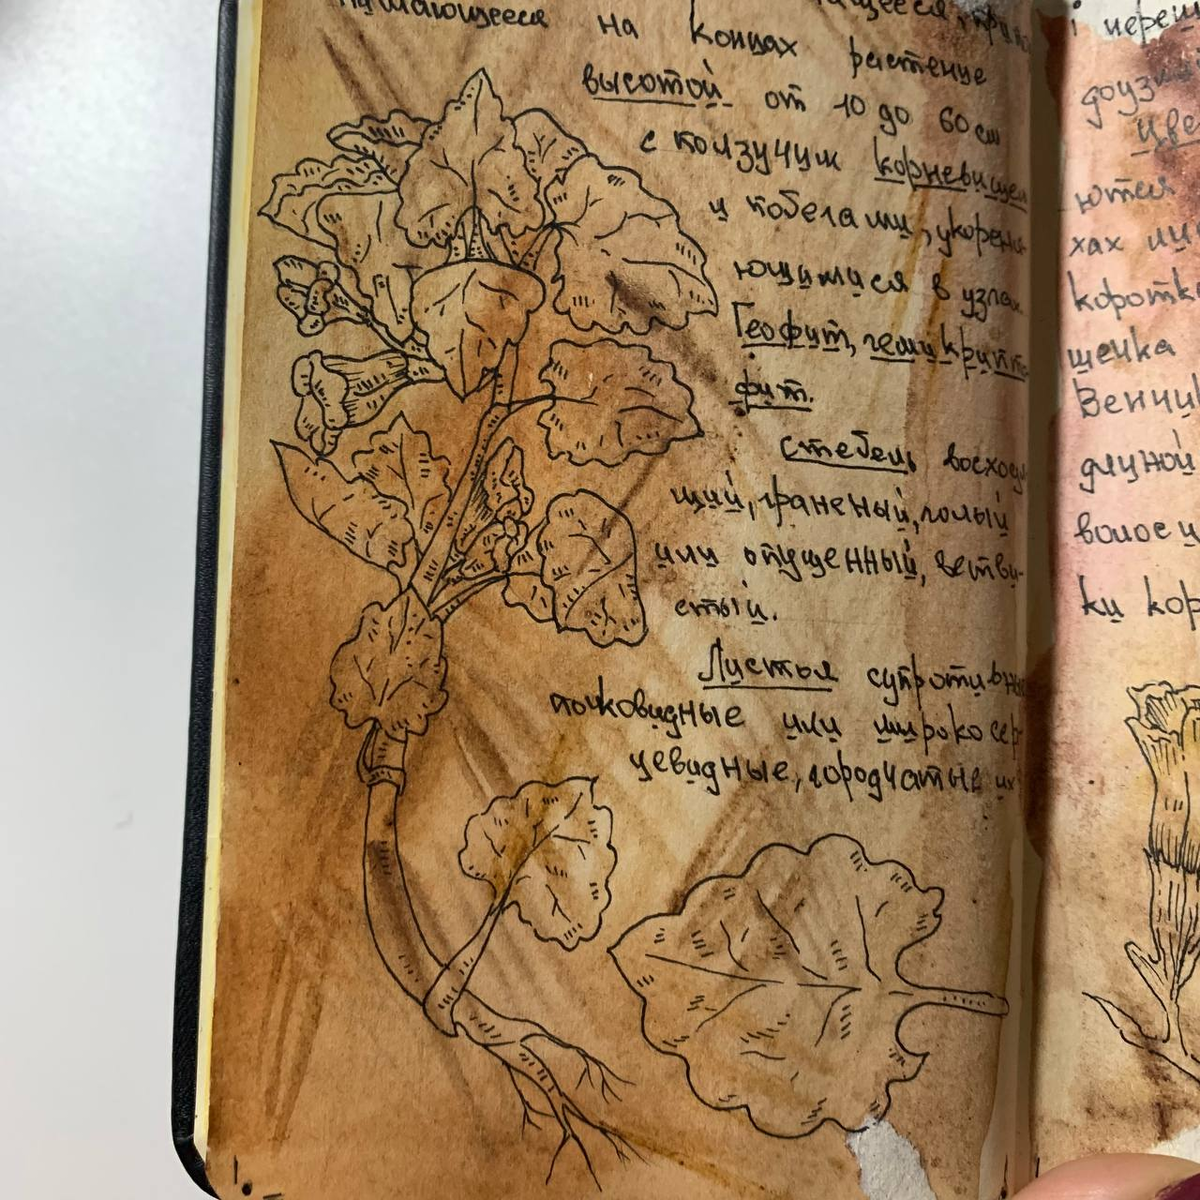 на концах растение
высотой от 10 до 60 см
с ползучим корневищем
и побегами, укореня-
ющимися в узлах.
Геофит, гемикрипто-
фит.
Стебель восходя
щий, граненый, голый
или опущенный, ветви-
стый.
Листья супротивные
почковидные или широко сер
цевидные, городчатые их
і
доузк
цве
ются
хах или
коротк
щенка
Венчик
длиной
волоси
ки кор